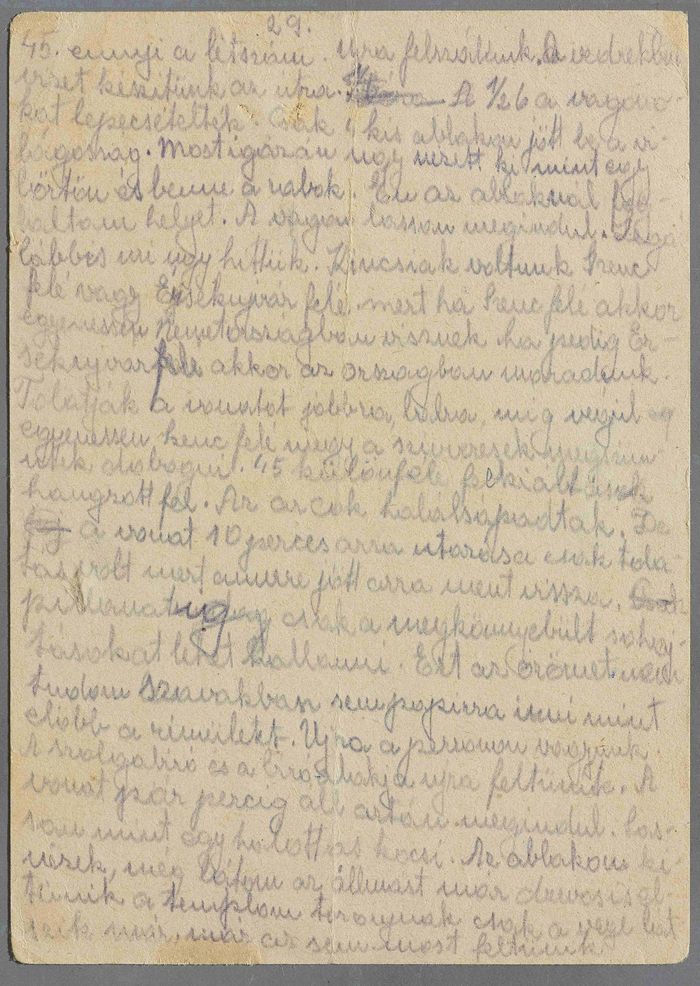 29.
45. ennyi a létszám. Ujra felszállunk. A vedrekben
vizet készitünk az útra. A 1/2 6 a vagóno-
kat lepecsételték. Csak 4 kis ablakon jött be a vi-
lágosság. Most igazán úgy nézett ki mint egy
börtön és benne a rabok. Én az ablaknál fog-
laltam helyet. A vagon lassan megindul.
mi úgy hittük. Kincsiak voltunk Szenc
felé vagy Érsekujvár felé, mert há Szenc felé akkor
egyenessen Németországban visznek ha pedig Ér-
sekujvár felé akkor az országban maradunk.
Tolatják a vonatot jobbra, balra, mig végül
egyenessen Szenc felé megy a szivverések megszün
tek dobogni. 45 különféle fekialtások
hangzott fél. Az arcok halálsápadtak. De
a vonat 10 perces arra utazása csak tola-
tás volt mert amerre jött arra ment vissza.
pillanat csak a megkönnyebült sohaj-
tásokat lehet hallanni. Ezt az örömet nem
tudom szavakban sem papirra irni mint
előbb a rémületet. Ujra a perronon vagyunk.
A szolgabiró és a bandája ujra feltünik. A
vonat pár percig áll aztán megindul. Las-
san mint egy halottas kocsi. Az ablakon ki-
nézek, még látom az állmást már Dunaszerdahely
tünik a templom tornyának csak a vége lát
szik már, már az sem most feltünik